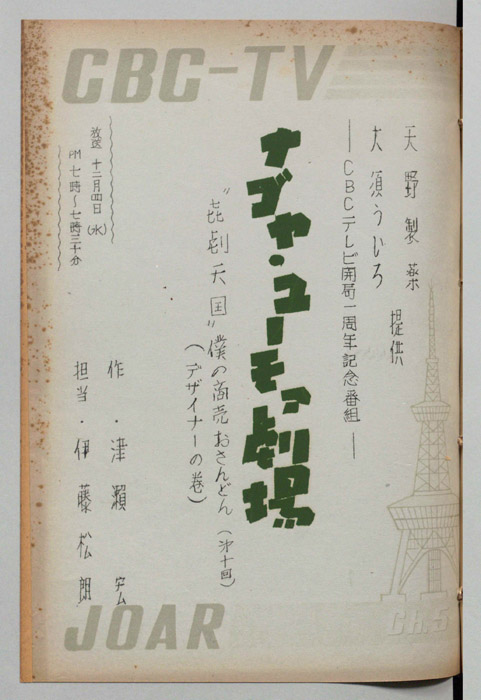 CBC-TV
天野製薬
大須ういろ
提供
―CBCテレビ開局一周年記念番組―
ナゴヤ・ユーモア劇場
"喜劇天国"僕の商売おさんどん(第十回)
(デザイナーの巻)
放送 十二月四日(水)
PM 七時~七時三十分
作・津瀬宏
担当・伊藤松朗
JOAR
CH.5